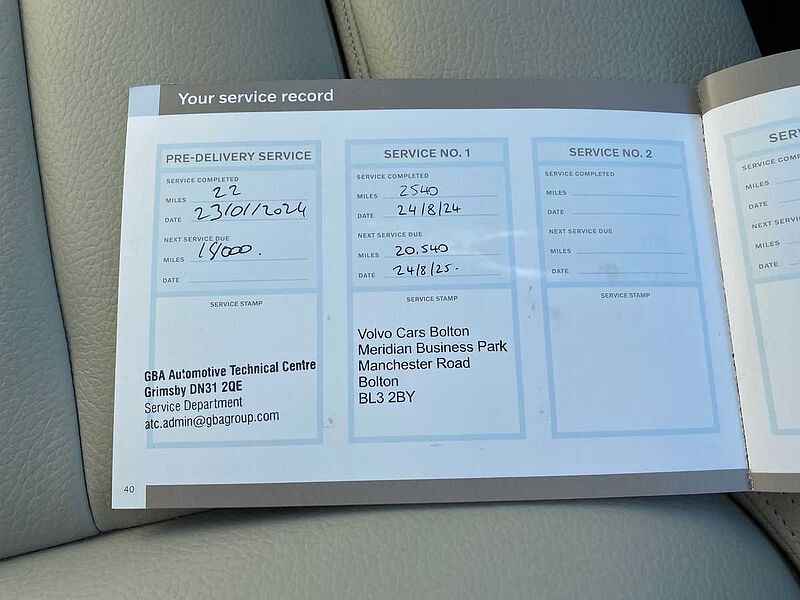 Your service record
PRE-DELIVERY SERVICE
SERVICE COMPLETED
MILES 22
DATE 23/01/2024
NEXT SERVICE DUE
MILES
DATE
SERVICE STAMP
GBA Automotive Technical Centre
Grimsby DN31 2QE
Service Department
atc.admin@gbagroup.com
SERVICE NO. 1
SERVICE COMPLETED
MILES 2540
DATE 24/8/24
NEXT SERVICE DUE
MILES 20.540
DATE 24/8/25.
SERVICE STAMP
Volvo Cars Bolton
Meridian Business Park
Manchester Road
Bolton
BL3 2BY
SERVICE NO. 2
SERVICE COMPLETED
MILES
DATE
NEXT SERVICE DUE
MILES
DATE
SERVICE STAMP
MILES
DATE
NEXT SERVICE
MILES
DATE
40